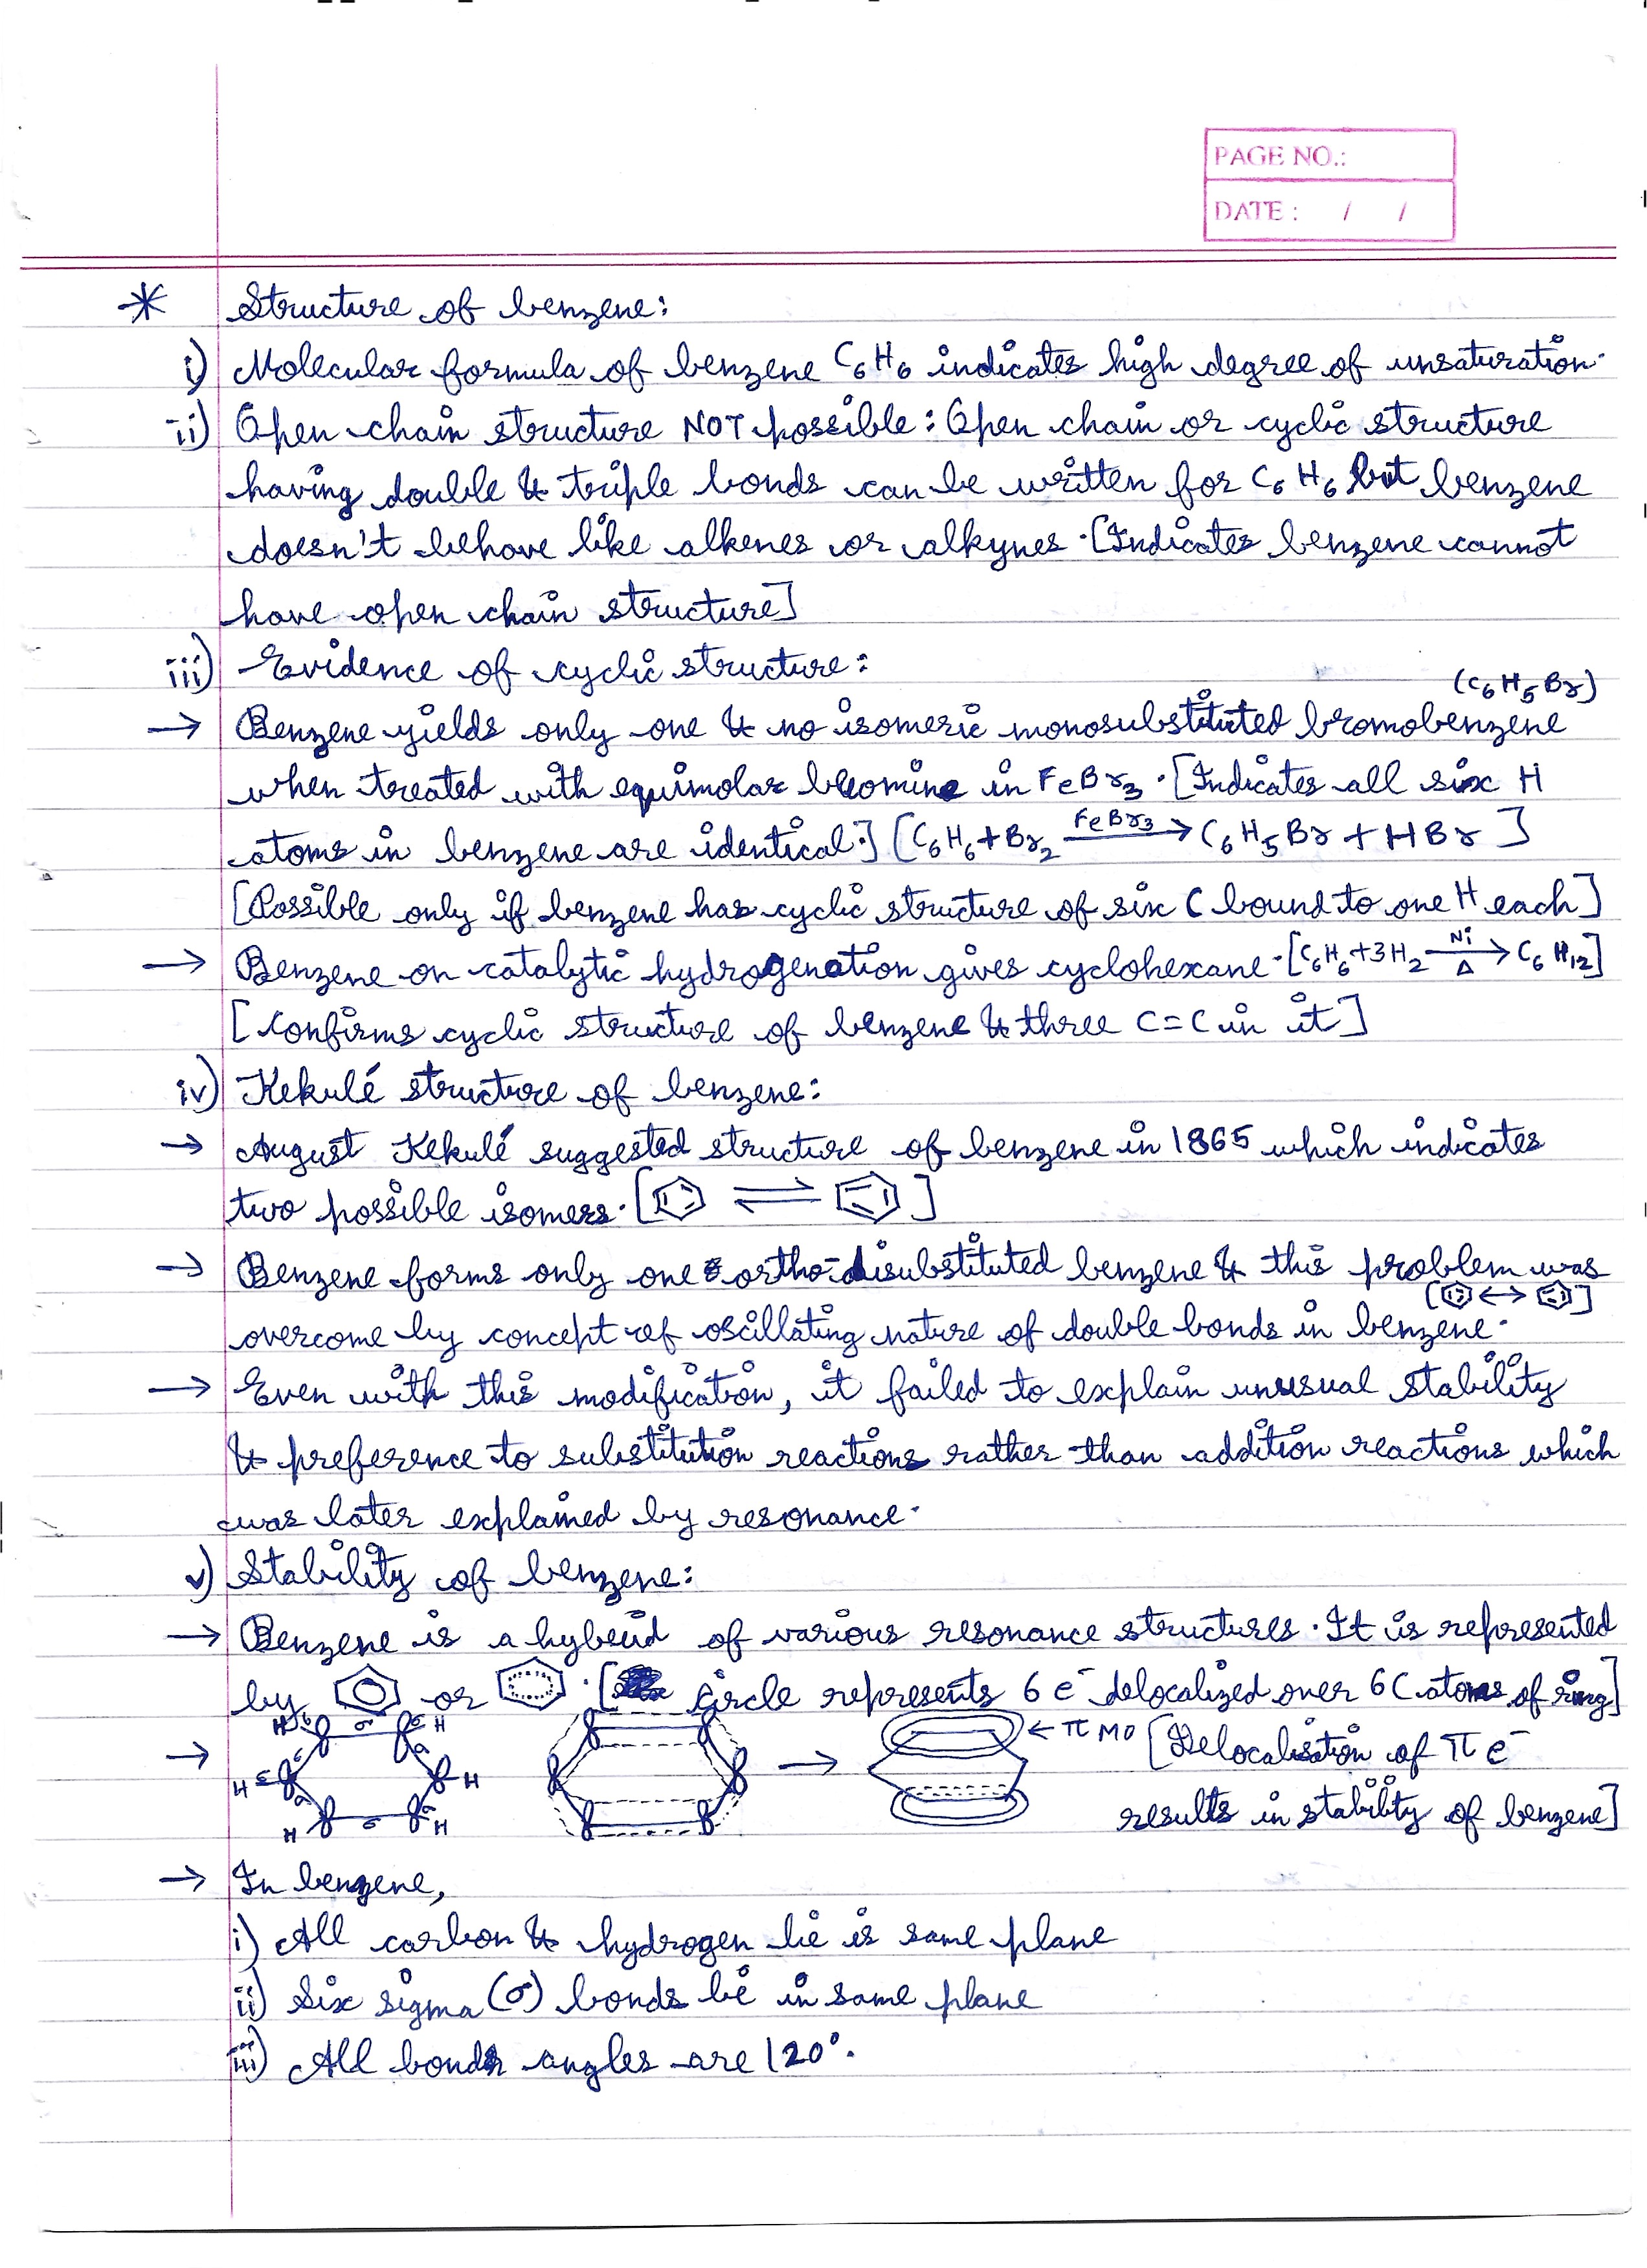 PAGE NO.:
DATE : / /
* Structure of benzene:
i) Molecular formula of benzene C₆H₆ indicates high degree of unsaturation.
ii) Open chain structure NOT possible: Open chain or cyclic structure
having double & triple bonds can be written for C₆H₆ but benzene
doesn't behave like alkenes or alkynes. [Indicates benzene cannot
have open chain structure]
iii) Evidence of cyclic structure:
(C₆H₅Br)
→ Benzene yields only one & no isomeric monosubstituted bromobenzene
when treated with equimolar bromine in FeBr₃. [Indicates all six H
atoms in benzene are identical.] [C₆H₆ + Br₂ FeBr₃→ C₆H₅Br + HBr]
[Possible only if benzene has cyclic structure of six C bound to one H each]
→ Benzene on catalytic hydrogenation gives cyclohexane. [C₆H₆+3H₂ Ni→Δ C₆H₁₂]
[Confirms cyclic structure of benzene & three C=C in it]
iv) Kekulé structure of benzene:
→ August Kekulé suggested structure of benzene in 1865 which indicates
two possible isomers. [ ⇌ ]
→ Benzene forms only one ortho-disubstituted benzene & this problem was
[ ↔ ]
overcome by concept of oscillating nature of double bonds in benzene.
→ Even with this modification, it failed to explain unusual stability
& preference to substitution reactions rather than addition reactions which
was later explained by resonance.
v) Stability of benzene:
→ Benzene is a hybrid of various resonance structures. It is represented
by or . [ Circle represents 6 e⁻ delocalized over 6 C atoms of ring]
H σ σ σ H
→ ← π MO [Delocalisation of π e⁻
H σ σ H →
σ σ results in stability of benzene]
H σ H
→ In benzene,
i) All carbon & hydrogen lie is same plane
ii) Six sigma (σ) bonds lie in same plane
iii) All bonds angles are 120°.